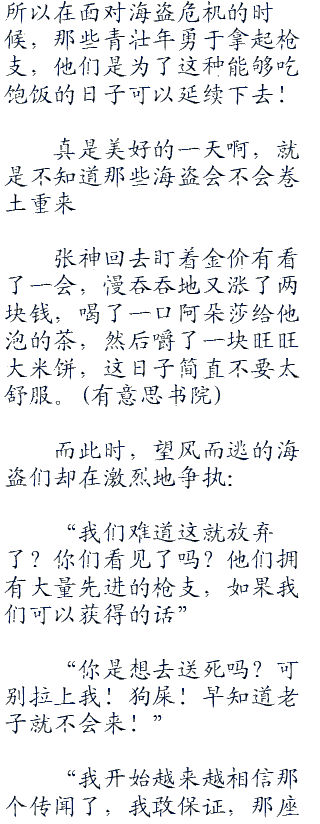 所以在面对海盗危机的时
候，那些青壮年勇于拿起枪
支，他们是为了这种能够吃
饱饭的日子可以延续下去！
真是美好的一天啊，就
是不知道那些海盗会不会卷
土重来
张神回去盯着金价有看
了一会，慢吞吞地又涨了两
块钱，喝了一口阿朵莎给他
泡的茶，然后嚼了一块旺旺
大米饼，这日子简直不要太
舒服。（有意思书院）
而此时，望风而逃的海
盗们却在激烈地争执：
“我们难道这就放弃
了？你们看见了吗？他们拥
有大量先进的枪支，如果我
们可以获得的话”
“你是想去送死吗？可
别拉上我！狗屎！早知道老
子就不会来！”
“我开始越来越相信那
个传闻了，我敢保证，那座